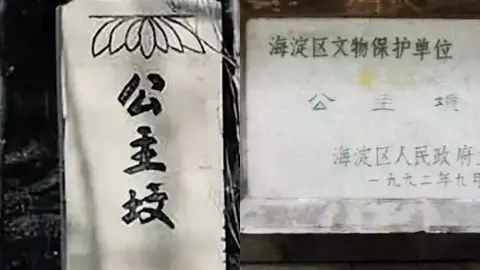 公主坟
海淀区文物保护单位
公主墳
海淀区人民政府
一九九二年九月